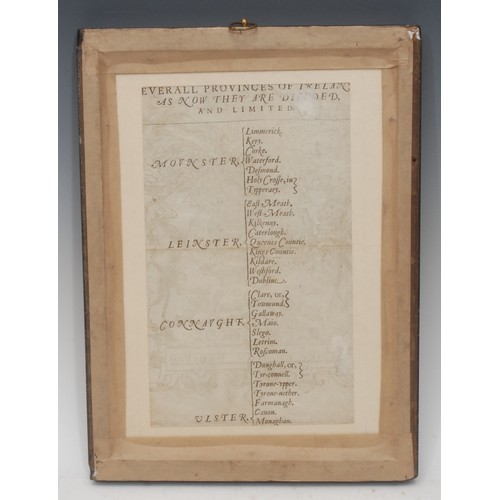 EVERALL PROVINCES OF IRELAN
AS NOW THEY ARE DEVIDED,
AND LIMITED
MOVNSTER,
Limmerick.
Kery.
Corke.
Waterford.
Desmond.
Holy Crosse, in
Typperary.
LEINSTER,
East Meath.
West Meath.
Kilkenny.
Caterlough.
Queenes Countie.
Kings Countie.
Kildare.
Weshford.
Dubline.
CONNAVGHT,
Clare, or,
Towmound.
Gallaway.
Maio.
Slego.
Letrim.
Roscoman.
VLSTER,
Doughall, or,
Tyr-connell.
Tyrone-vpper.
Tyrone-nether.
Farmanagh.
Cauan.
Monaghan.